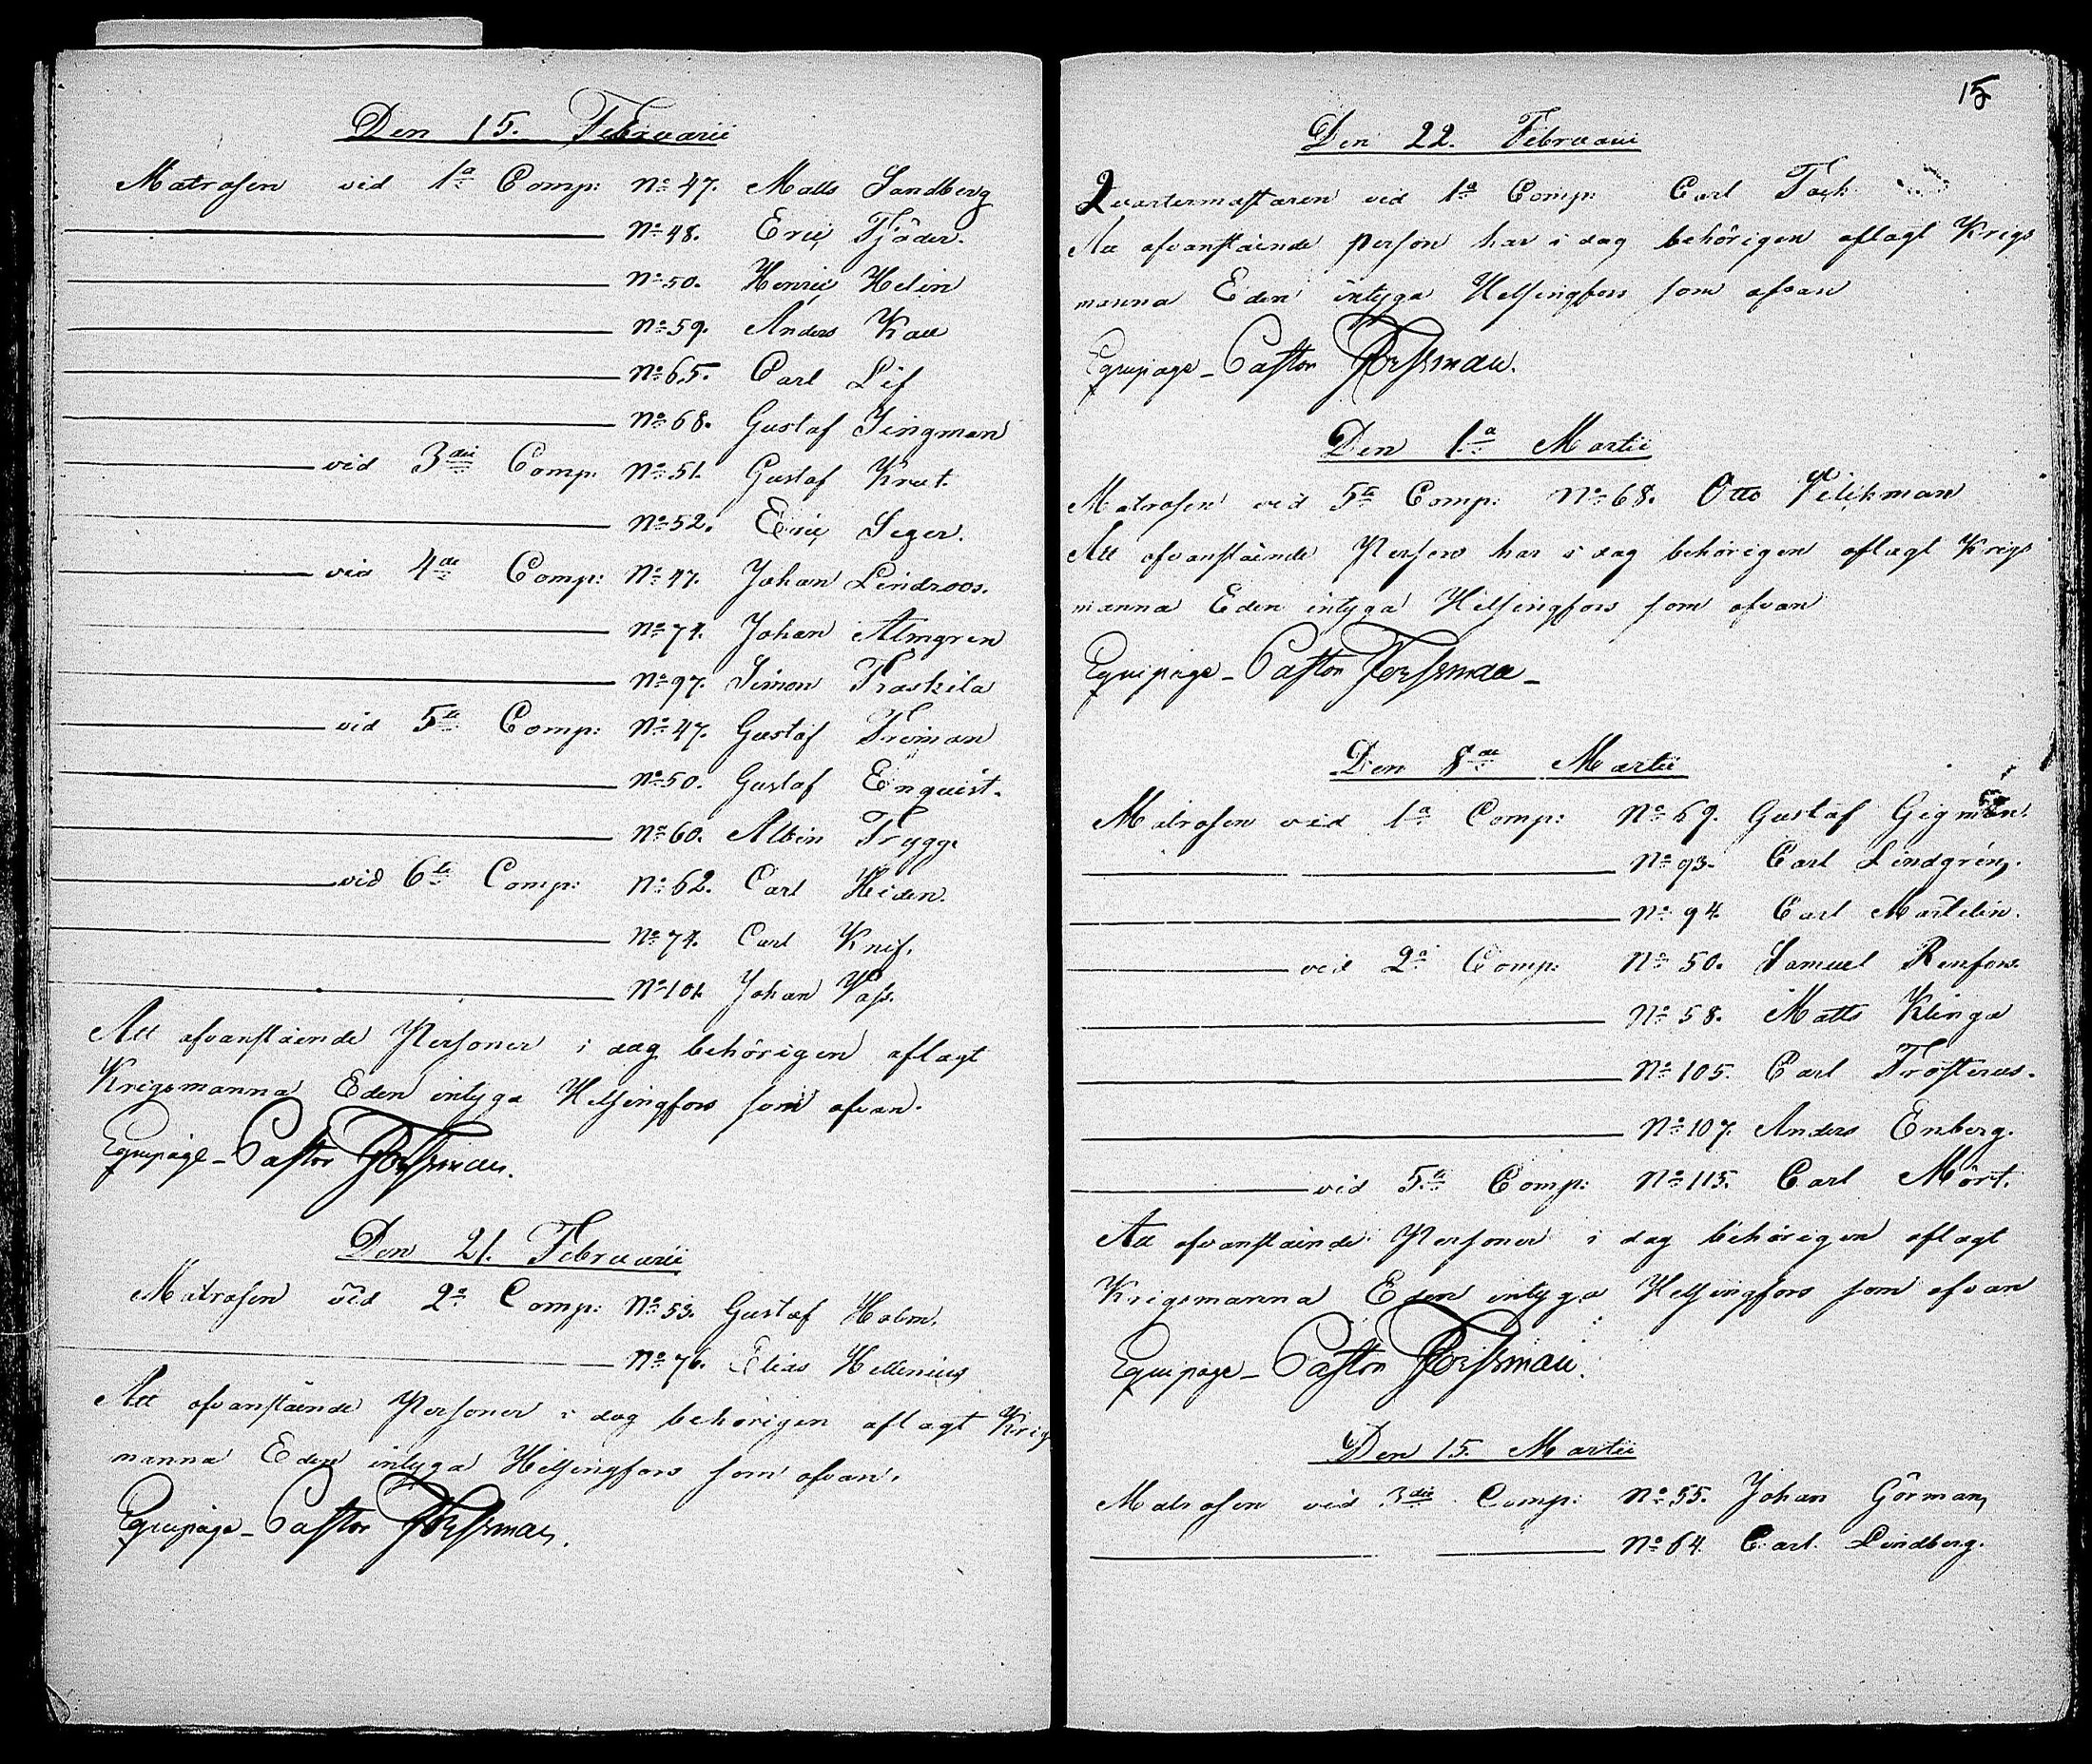 Den 15. Februarii
Matrosen vid 1a Comp: No 47. Matts Sandberg
No 48. Eric Tjäder.
No 50. Henric Helin
No 59. Anders Kall
No 65. Carl Lif
No 68. Gustaf Singman
vid 3die Comp. No 51. Gustaf Krut.
No 52. Eric Seger.
vid 4de Comp: No 47. Johan Lindroos.
No 74. Johan Almgren
No 97. Simon Traskila
vid 5te Comp: No 47. Gustaf Friman
No 50. Gustaf Enquist.
No 60. Albin Trygg.
vid 6te Comp: No 62. Carl Hiden.
No 74. Carl Knif.
No 101. Johan Pass.
Att ofvanstående Personer i dag behörigen aflagt
Krigsmanna Eden intyga Helsingfors som ofvan.
Equipage-Pastor Forssman.
Den 21. Februarii
Matrosen vid 2a Comp: No 53. Gustaf Holm.
No 76. Elias Hellenius
Att ofvanstående Personer i dag behörigen aflagt Krigs
manna Eden intyga Helsingfors som ofvan.
Equipage-Pastor Forssman.
15
Den 22. Februarii
Quartermästaren vid 1a Comp: Carl Tack
Att ofvanstående person har i dag behörigen aflagt Krigs
manna Eden intyga Helsingfors som ofvan
Equipage-Pastor Forssman.
Den 1a Martii
Matrosen vid 5te Comp: No 68. Otto Pilckman
Att ofvanstående Person har i dag behörigen aflagt Krigs
manna Eden intyga Helsingfors som ofvan
Equipage-Pastor Forssman-
Den 8de Martii
Matrosen vid 1a Comp: No 69. Gustaf Gigman.
No 93. Carl Lindgrén.
No 94. Carl Martelin.
vid 2a Comp: No 50. Samuel Renfors.
No 58. Matts Klinga
No 105. Carl Frosterus.
No 107. Anders Enberg.
vid 5te Comp: No 113. Carl Mört.
Att ofvanstående Personer i dag behörigen aflagt
Krigsmanna Eden intyga Helsingfors som ofvan
Equipage-Pastor Forssman.
Den 15. Martii
Matrosen vid 3die Comp: No 55. Johan Görman
No 64. Carl Lindberg.